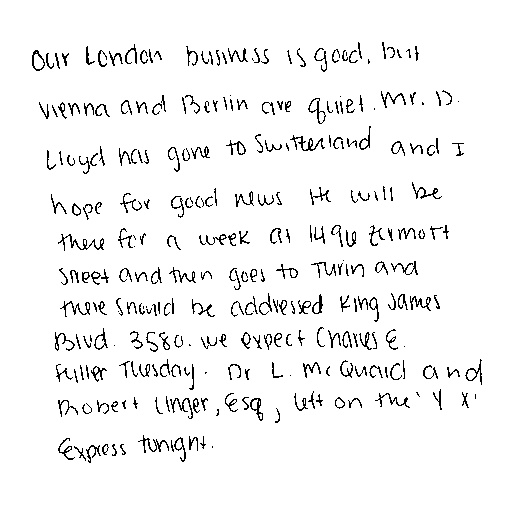 Our London business is good, but
Vienna and Berlin are quiet. Mr. D.
Lloyd has gone to Switzerland and I
hope for good news He will be
there for a week at 1496 Zermott
Street and then goes to Turin and
there should be addressed King James
Blvd. 3580. We expect Charles E.
Fuller Tuesday. Dr L. McQuaid and
Robert Unger, Esq, left on the 'Y X'
Express tonight.